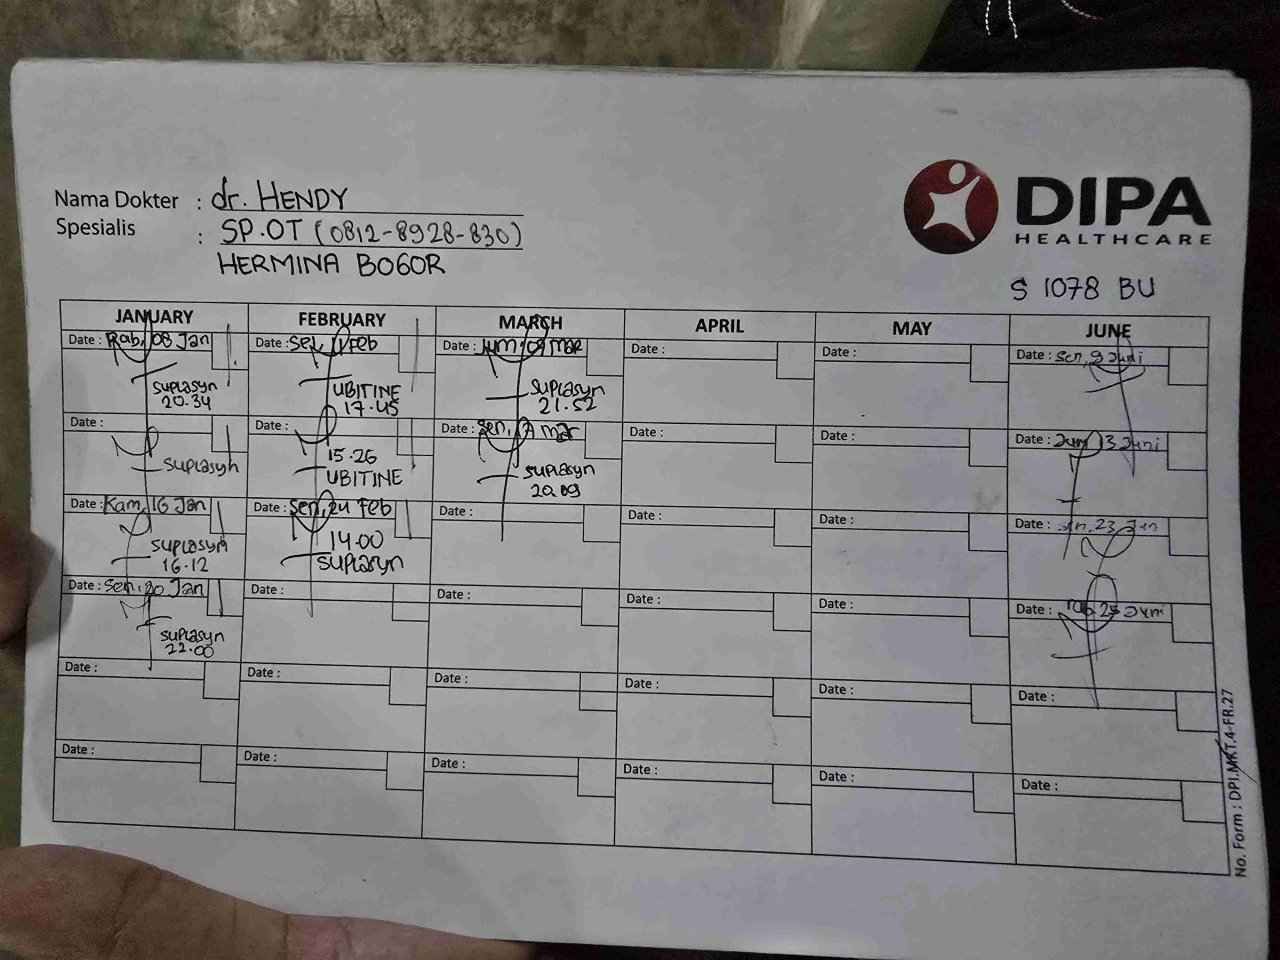 Nama Dokter : dr. HENDY
Spesialis : SP.OT (0812-8928-830)
HERMINA BOGOR
DIPA
HEALTHCARE
S 1078 BU
JANUARY FEBRUARY MARCH APRIL MAY JUNE
Date : Rab, 08 Jan
Suplasyn
20.34
Date : Sel, 11 Feb
UBITINE
17.45
Date : Jum, 07 Mar
Suplasyn
21.52
Date :
Date :
Date : Sen, 9 Juni
Date :
Suplasyn
Date :
15.26
UBITINE
Date : Sen, Mar
Suplasyn
20.09
Date :
Date :
Date : Jum 13 Juni
Date : Kam, 16 Jan
Suplasyn
16.12
Date : Sen, 24 Feb
14.00
Suplasyn
Date :
Date :
Date :
Date : Sen, 23 Jun
Date : Sen, 20 Jan
Suplasyn
22.00
Date :
Date :
Date :
Date :
Date : rab 25 Juni
Date :
Date :
Date :
Date :
Date :
Date :
Date :
Date :
Date :
Date :
Date :
Date :
No. Form : DPI.MKT.4-FR.27